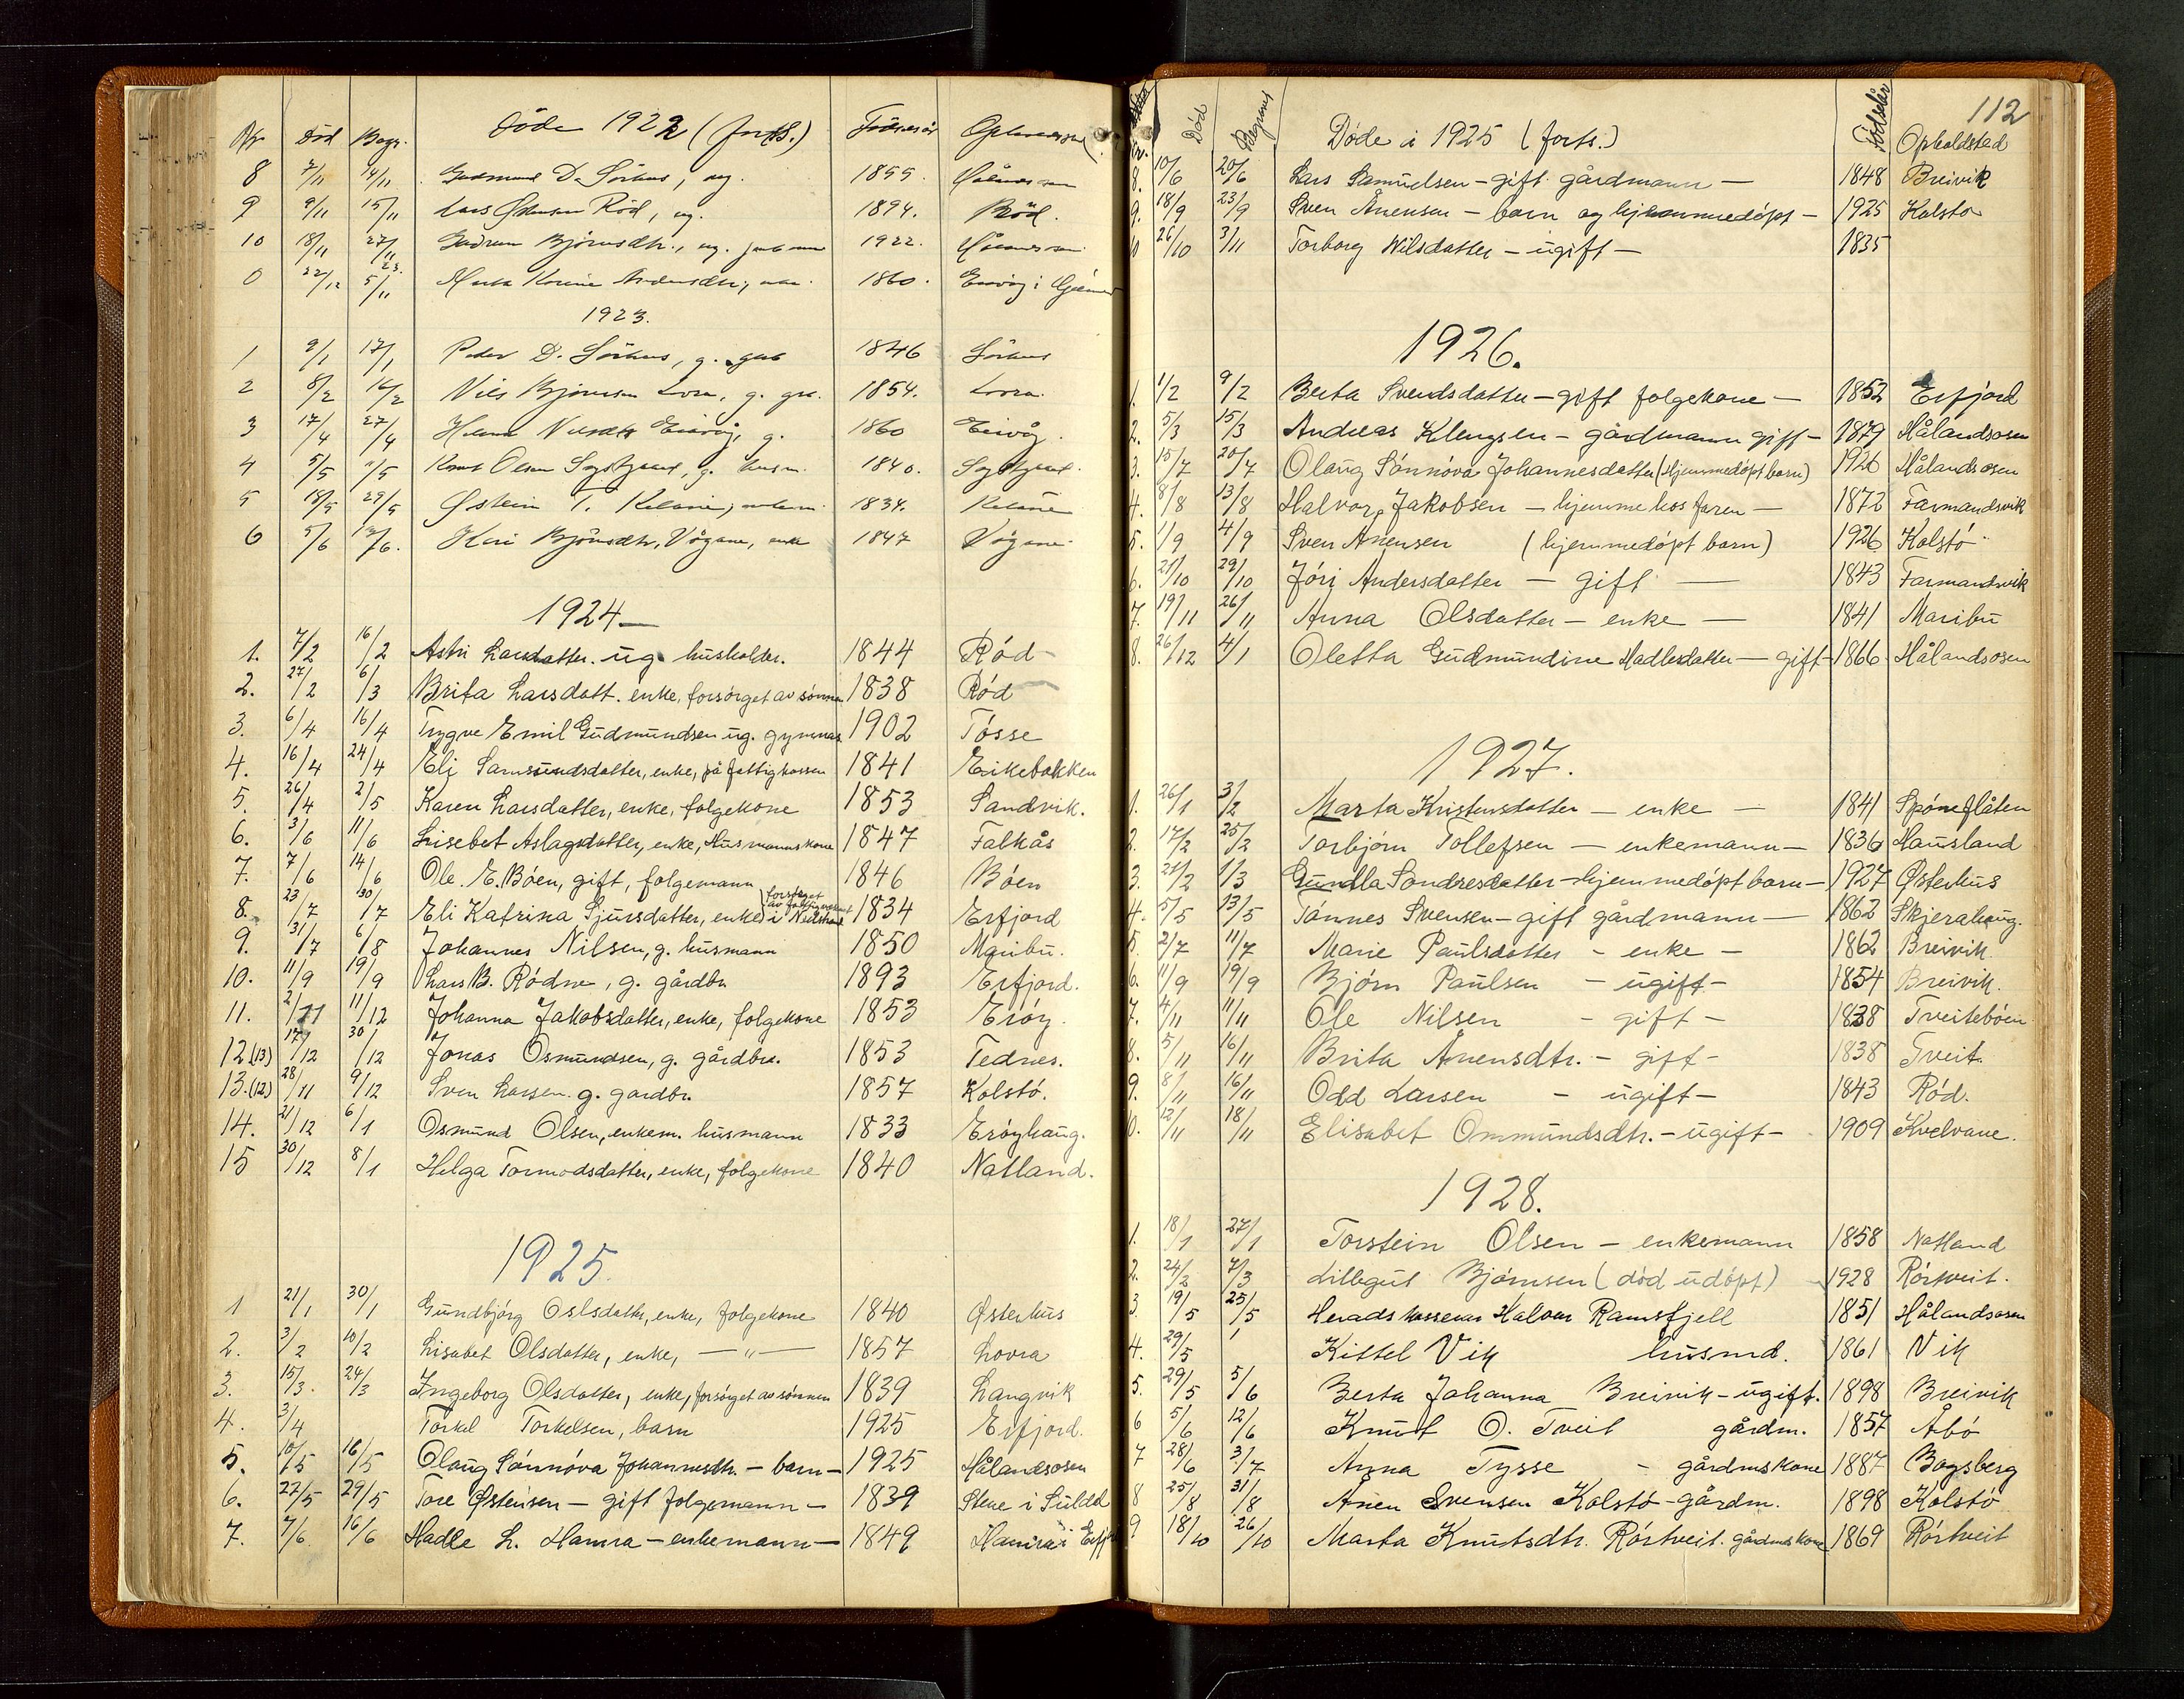 Nr. Død Begr. Døde 1922 (forts.) Fødselsår Opholdssted
8 7/11 14/11 Gudmund D. Sørhus, ug. 1855.
9 9/11 15/11 Lars Rød, ug. 1894. Rød.
10 18/11 27/11 Gudrun Bjørnsdtr., ug. 1922.
0 22/12 5/11 23. Marta Korine Andersdtr., 1860. Eirøy i
1923.
1 9/1 17/1 Peder D. Sørhus, g. 1846 Sørhus
2 8/2 16/2 Nils Bjørnsen Lovra, g. 1854. Lovra.
3 17/4 27/4 Nilsdtr Eirøy, g. 1860 Eirøy.
4 5/5 /5 Knut Olsen g. husm. 1840.
5 18/5 29/5 Østein T. 1834.
6 5/6 /6. Kari Bjørnsdtr, Vågane, enke 1847 Vågane.
1924
1. 7/2 16/2 Astri Larsdatter. ug. husholder. 1844 Rød
2. 27/2 6/3 Brita Larsdatt. enke, forsørget av sønnen 1838 Rød
3. 6/4 16/4 Trygve Emil Gudmundsen ug. gymnas 1902 Tøsse
4. 16/4 24/4 Eli Samsundsdatter, enke, på fattigkassen 1841 Eikebakken
5. 26/4 2/5 Karen Larsdatter, enke, folgekone 1853 Sandvik.
6. 3/6 11/6 Lisebet Aslagsdatter, enke, Husmannskone 1847 Falkås
7. 7/6 14/6 Ole. E. Bøen, gift, folgemann 1846 Bøen
8. 23/7 30/7 Eli Katrina Sjursdatter, enke forsørget av i Nedstrand 1834 Erfjord
9. 31/7 6/8 Johannes Nilsen, g. husmann 1850 Maribu.
10. 11/9 19/9 Lars B. Rødne, g. gårdbr. 1893 Erfjord.
11. 2/11 11/12 Johanna Jakobsdatter, enke, folgekone 1853 Erøy.
12 (13) 17/12 30/12 Jonas Osmundsen, g. gårdbr. 1853 Tednes.
13. (12) 28/11 9/12 Sven Larsen. g. gardbr. 1857 Kolstø.
14. 21/12 6/1 Osmund Olsen, enkem. husmann 1833 Erøyhaug.
15 30/12 8/1 Helga Tormodsdatter, enke, folgekone 1840 Natland.
1925.
1 21/1 30/1 Gundbjørg Oslsdatter, enke, folgekone 1840 Østerhus
2. 3/2 10/2 Lisabet Olsdatter, enke, — " — 1857 Lovra
3. 15/3. 24/3 Ingeborg Olsdatter, enke, forsørget av sønnen 1839 Langvik
4. 3/4 Torkel Torkelsen, barn 1925 Erfjord.
5. 10/5 16/5 Olaug Sønnøva Johannesdtr. — barn — 1925 Hålandsosen
6. 27/5 29/5 Tore Østensen — gift folgemann — 1839 Stene i Suldal
7. 7/6 16/6 Hadle L. Hamra — enkemann — 1849 Hamra i Erfjord
112
Nr. Død Begravs Døde i 1925 (forts.) Fødselsår Opholdsted
8. 10/6 20/6 Lars Samuelsen — gift gårdmann — 1848 Breivik
9. 18/9 23/9 Sven Ånensen — barn og hjemmedøpt — 1925 Kolstø
10 26/10 3/11 Torborg Nilsdatter — ugift — 1835
1926.
1. 1/2 9/2 Berta Svendsdatter — gift folgekone — 1852 Erfjord
2. 5/3 15/3 Andreas Klengsen — gårdmann gift — 1879 Hålandsosen
3. 15/7 20/7 Olaug Sønnøva Johannesdatter (Hjemmedøpt barn) 1926 Hålandsosen
4. 8/8 13/8 Halvor Jakobsen — hjemme hos faren — 1872 Farmandsvik
5. 1/9 4/9 Sven Ånensen (hjemmedøpt barn) 1926 Kolstø
6. 21/10 29/10 Jøri Andersdatter — gift — 1843 Farmandsvik
7. 19/11 26/11 Anna Olsdatter — enke — 1841 Maribu
8. 26/12 4/1 Oletta Gudmundine Hadlesdatter — gift 1866 Hålandsosen
1927.
1. 26/1 3/2 Marta Kristensdatter — enke — 1841 Spøneflåten
2. 17/2 25/2 Torbjørn Tollefsen — enkemann — 1836 Hausland
3. 21/2 1/3 Gundla Sondresdatter — hjemmedøpt barn — 1927 Østerhus
4. 5/5 13/5 Tønnes Svensen — gift gårdmann — 1862 Skjerahaug.
5. 2/7 11/7 Marie Paulsdatter — enke — 1862 Breivik.
6. 11/9 19/9 Bjørn Paulsen — ugift — 1854 Breivik.
7. 4/11 11/11 Ole Nilsen — gift — 1838 Tveitebøen
8. 5/11 16/11 Brita Ånensdtr. — gift — 1838 Tveit.
9. 8/11 16/11 Odd Larsen — ugift — 1843 Rød.
10. 12/11 18/11 Elisabet Ommundsdtr. — ugift — 1909 Kvelvane.
1928.
1. 18/1 27/1 Torstein Olsen — enkemann 1858 Natland
2. 24/2 7/3 Lillegut Bjørnsen (død udøpt) 1928 Rørtveit.
3. 19/5 25/5 Heradskasserar Halvor Ramsfjell 1851 Hålandsosen
4. 29/5 / Kittel Vik husmd. 1861 Vik
5. 29/5 5/6 Berta Johanna Breivik — ugift. 1898 Breivik
6 5/6 12/6 Knut O. Tveit gårdm. 1857 Åbø
7 28/6 3/7 Anna Tysse — gårdmskone 1887 Bogsberg
8 25/8 31/8 Ånen Svensen Kolstø — gårdm. 1898 Kolstø
9 18/10 26/10 Marta Knutsdtr. Rørtveit. gårdmskone 1869 Rørtveit